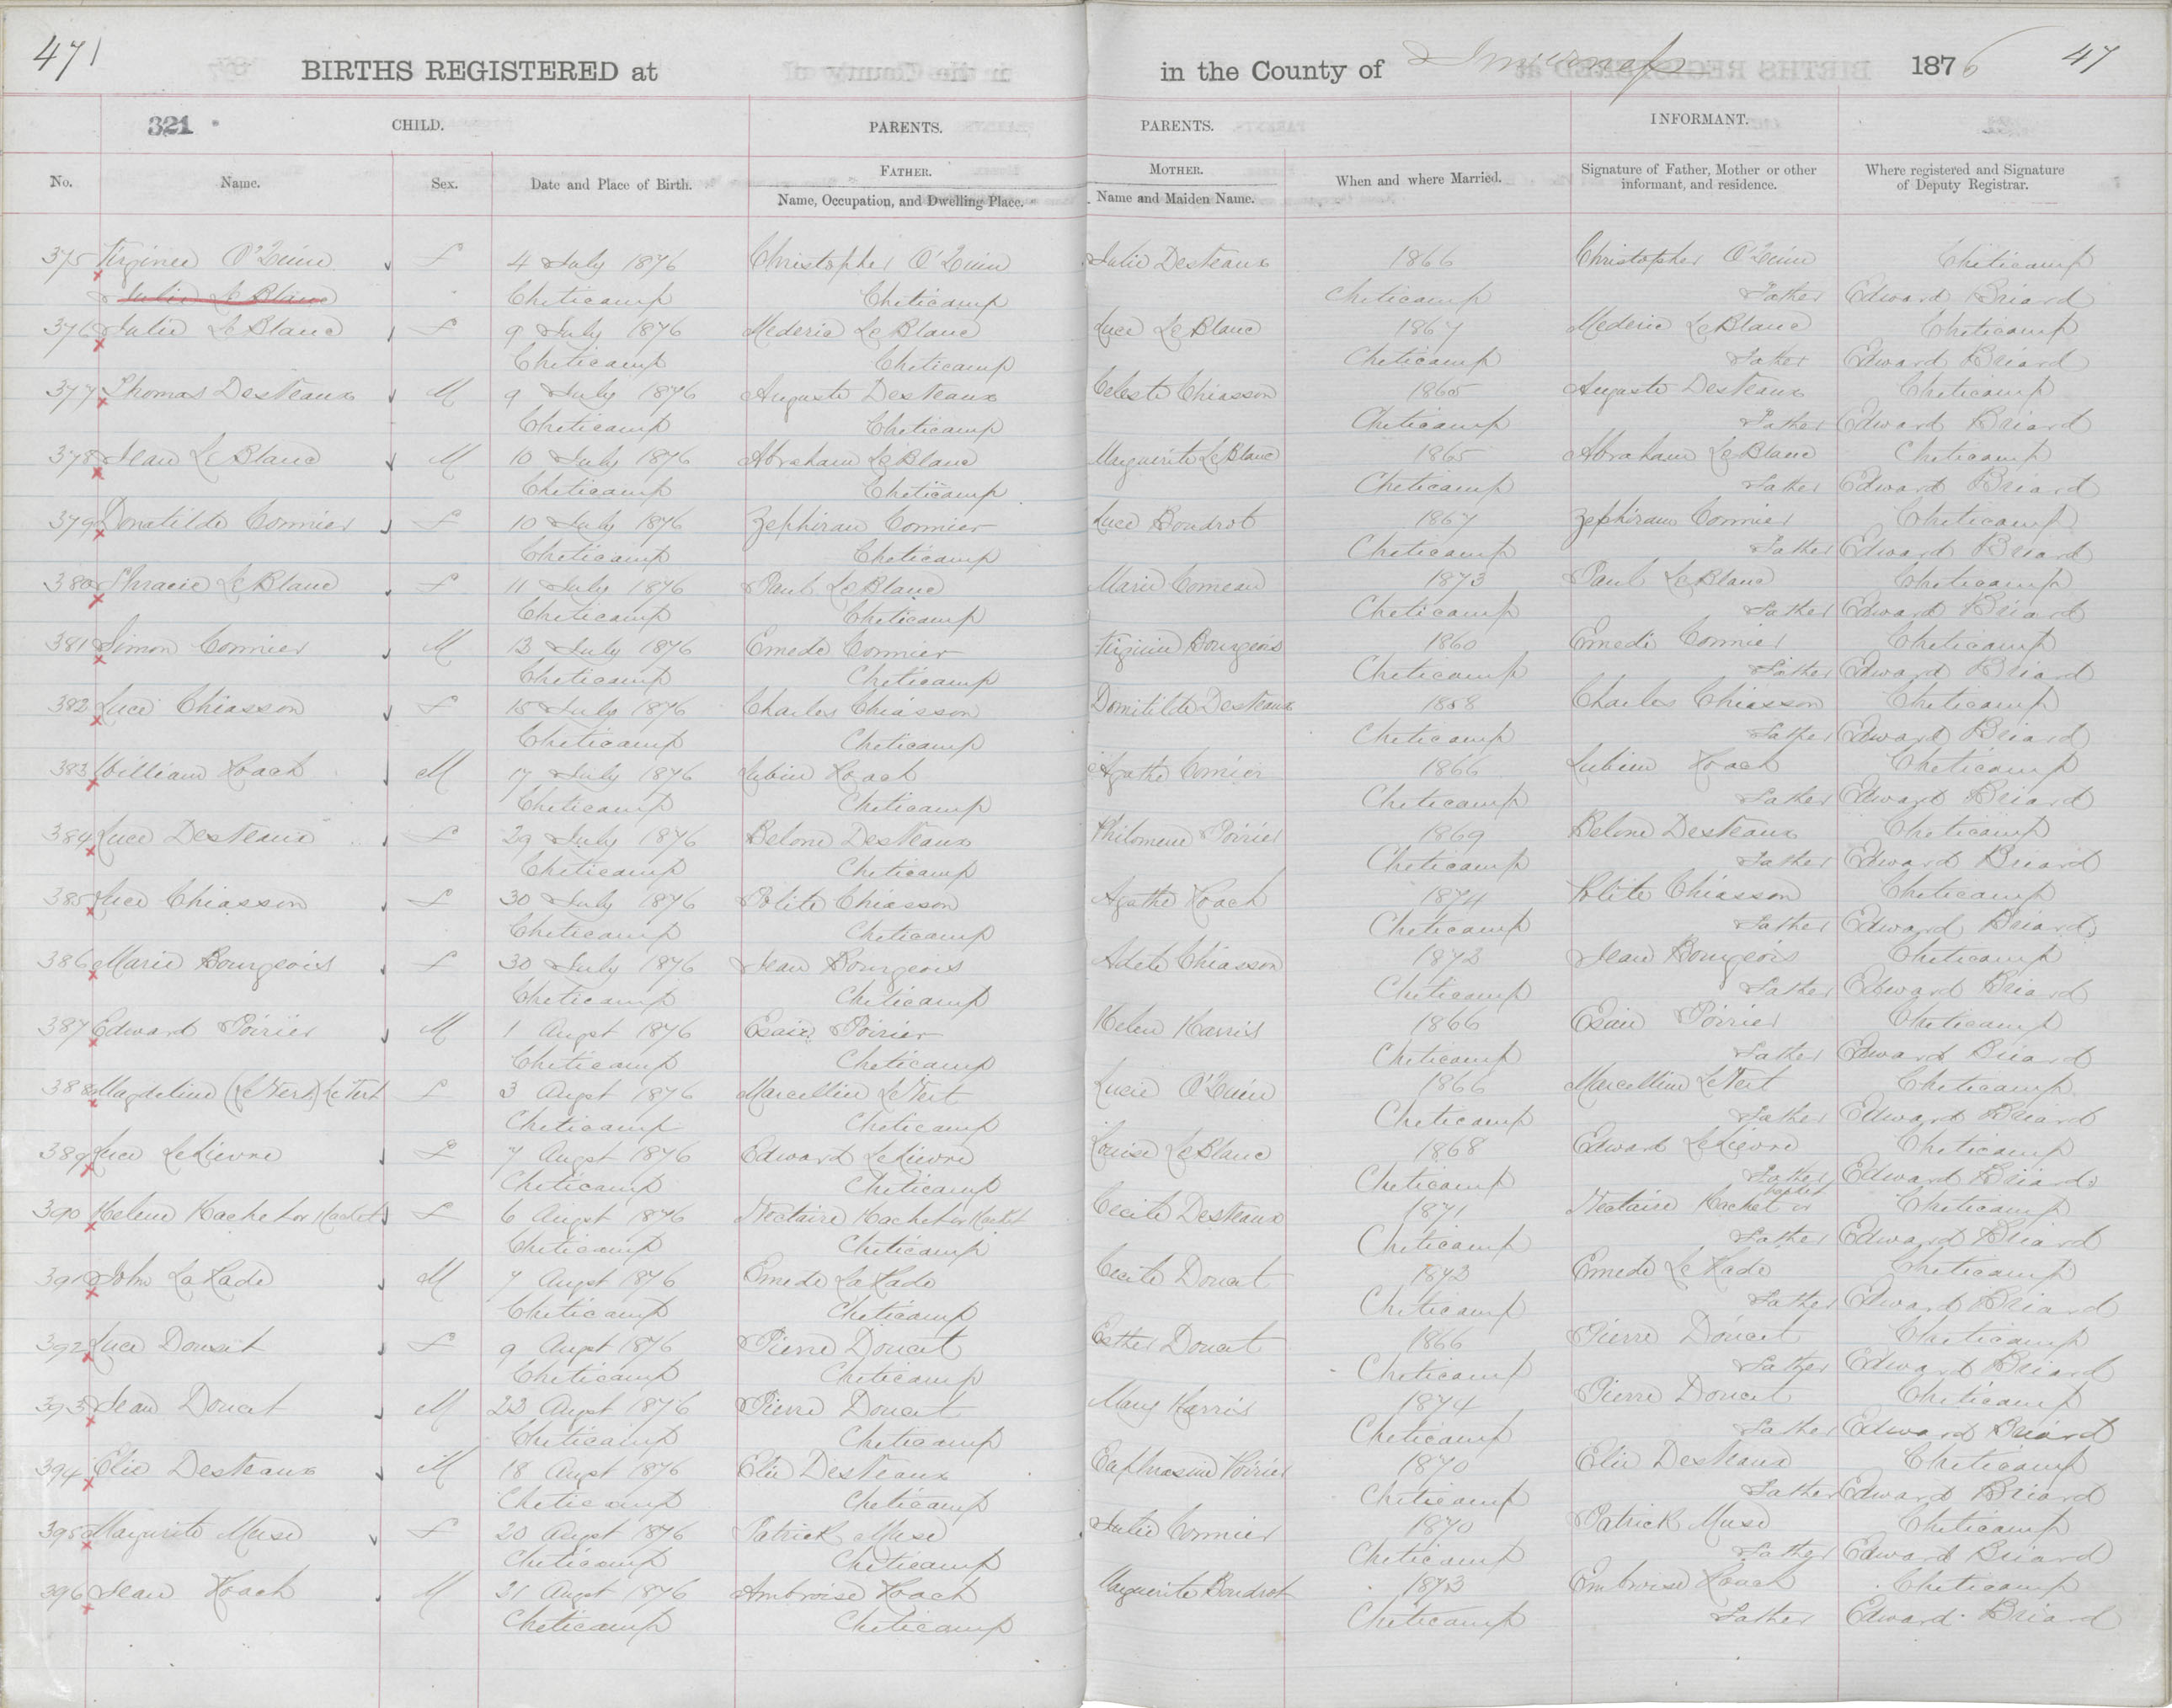 471
BIRTHS REGISTERED at in the County of Inverness 1876 47
321 CHILD. PARENTS. PARENTS. INFORMANT.
No. Name. Sex. Date and Place of Birth. FATHER. Name, Occupation, and Dwelling Place. MOTHER. Name and Maiden Name. When and where Married. Signature of Father, Mother or other informant, and residence. Where registered and Signature of Deputy Registrar.
375 Virginie O'Quinn f 4 July 1876 Christopher O'Quinn Julie Desveaux 1866 Christopher O'Quinn Cheticamp
Julie LeBlanc Cheticamp Cheticamp Cheticamp Father Edward Briard
376 Julie LeBlanc f 9 July 1876 Mederic LeBlanc Luce LeBlanc 1867 Mederic LeBlanc Cheticamp
Cheticamp Cheticamp Cheticamp Father Edward Briard
377 Thomas Desveaux M 9 July 1876 Auguste Desveaux Celeste Chiasson 1865 Auguste Desveaux Cheticamp
Cheticamp Cheticamp Cheticamp Father Edward Briard
378 Jean LeBlanc M 10 July 1876 Abraham LeBlanc Marguerite LeBlanc 1865 Abraham LeBlanc Cheticamp
Cheticamp Cheticamp Cheticamp Father Edward Briard
379 Donatilde Cormier f 10 July 1876 Zephiran Cormier Luce Boudrot 1867 Zephiran Cormier Cheticamp
Cheticamp Cheticamp Cheticamp Father Edward Briard
380 Thracie LeBlanc f 11 July 1876 Paul LeBlanc Marie Comeau 1873 Paul LeBlanc Cheticamp
Cheticamp Cheticamp Cheticamp Father Edward Briard
381 Simon Cormier M 13 July 1876 Emede Cormier Virginie Bourgeois 1860 Emede Cormier Cheticamp
Cheticamp Cheticamp Cheticamp Father Edward Briard
382 Luce Chiasson f 15 July 1876 Charles Chiasson Domitilde Desveaux 1858 Charles Chiasson Cheticamp
Cheticamp Cheticamp Cheticamp Father Edward Briard
383 William Roach M 17 July 1876 Lubin Roach Agathe Cormier 1866 Lubin Roach Cheticamp
Cheticamp Cheticamp Cheticamp Father Edward Briard
384 Luce Desveaux f 29 July 1876 Belone Desveaux Philomene Poirier 1869 Belone Desveaux Cheticamp
Cheticamp Cheticamp Cheticamp Father Edward Briard
385 Luce Chiasson f 30 July 1876 Polite Chiasson Agathe Roach 1874 Polite Chiasson Cheticamp
Cheticamp Cheticamp Cheticamp Father Edward Briard
386 Marie Bourgeois f 30 July 1876 Jean Bourgeois Adele Chiasson 1872 Jean Bourgeois Cheticamp
Cheticamp Cheticamp Cheticamp Father Edward Briard
387 Edward Poirier M 1 Augst 1876 Esaie Poirier Helen Harris 1866 Esaie Poirier Cheticamp
Cheticamp Cheticamp Cheticamp Father Edward Briard
388 Magdeline (LeVert) LeVert f 3 Augst 1876 Marcellin LeVert Lucie O'Quinn 1866 Marcellin LeVert Cheticamp
Cheticamp Cheticamp Cheticamp Father Edward Briard
389 Luce LeLievre f 7 Augst 1876 Edward LeLievre Louise LeBlanc 1868 Edward LeLievre Cheticamp
Cheticamp Cheticamp Cheticamp Father Edward Briard
390 Helene Hachet or Hacket f 6 Augst 1876 Nectaire Hachet or Hacket Cecile Desveaux 1871 Nectaire Hachet or Hacket Cheticamp
Cheticamp Cheticamp Cheticamp Father Edward Briard
391 John LaHade M 7 Augst 1876 Emede LaHade Cecile Doucet 1872 Emede LeHade Cheticamp
Cheticamp Cheticamp Cheticamp Father Edward Briard
392 Luce Doucet f 9 Augst 1876 Pierre Doucet Esther Doucet 1866 Pierre Doucet Cheticamp
Cheticamp Cheticamp Cheticamp Father Edward Briard
393 Jean Doucet M 22 Augst 1876 Pierre Doucet Mary Harris 1874 Pierre Doucet Cheticamp
Cheticamp Cheticamp Cheticamp Father Edward Briard
394 Elie Desveaux M 18 Augst 1876 Elie Desveaux Euphrasine Poirier 1870 Elie Desveaux Cheticamp
Cheticamp Cheticamp Cheticamp Father Edward Briard
395 Marguerite Muse f 20 Augst 1876 Patrick Muse Julie Cormier 1870 Patrick Muse Cheticamp
Cheticamp Cheticamp Cheticamp Father Edward Briard
396 Jean Roach M 21 Augst 1876 Ambroise Roach Marguerite Boudrot 1873 Embroise Roach Cheticamp
Cheticamp Cheticamp Cheticamp Father Edward Briard